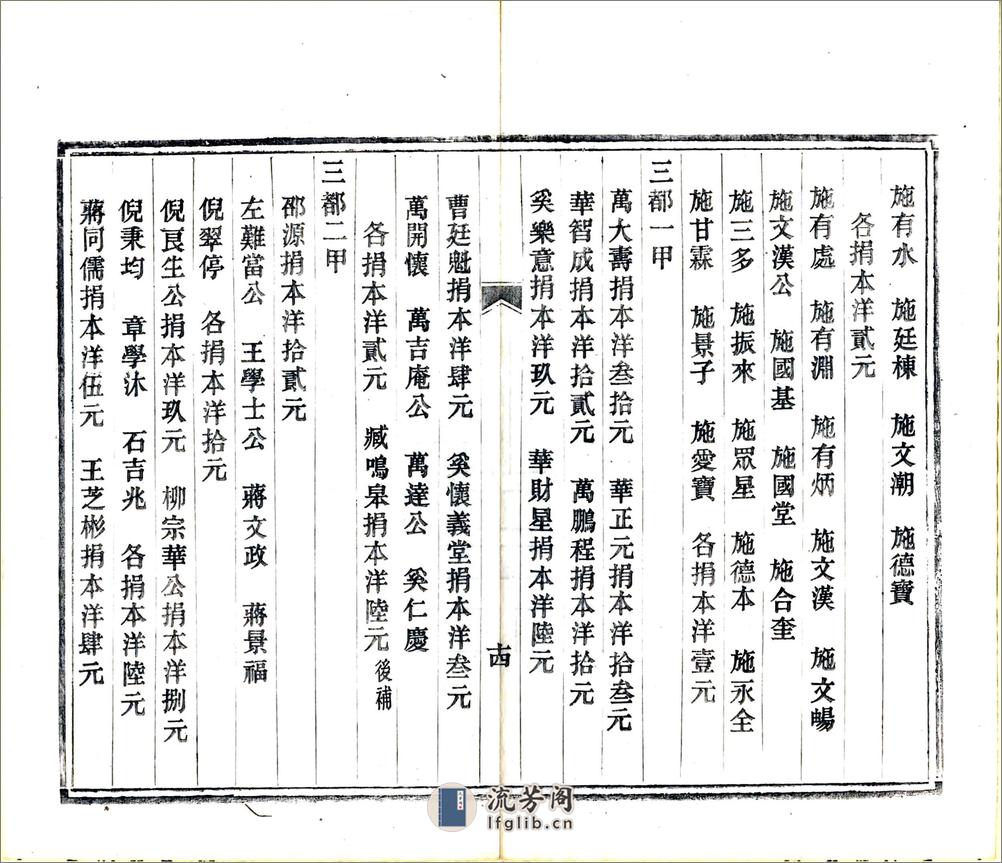 施有水　施廷棟　施文潮　施德寶
各捐本洋貳元
施有處　施有淵　施有炳　施文漢　施文暢
施文漢公　施國基　施國堂　施合奎
施三多　施振來　施眾星　施德本　施永全
施甘霖　施景子　施愛寶　各捐本洋壹元
三都一甲
萬大壽捐本洋叁拾元　華正元捐本洋拾叁元
華智成捐本洋拾貳元　萬鵬程捐本洋拾元
奚樂意捐本洋玖元　華財星捐本洋陸元
十四
曹廷魁捐本洋肆元　奚懷義堂捐本洋叁元
萬開懷　萬吉庵公　萬達公　奚仁慶
各捐本洋貳元　臧鳴皋捐本洋陸元後補
三都二甲
邵源捐本洋拾貳元
左難當公　王學士公　蔣文政　蔣景福
倪翠停　各捐本洋拾元
倪良生公捐本洋玖元　柳宗華公捐本洋捌元
倪秉均　章學沐　石吉兆　各捐本洋陸元
蔣同儒捐本洋伍元　王芝彬捐本洋肆元
流芳阁
lfglib.cn